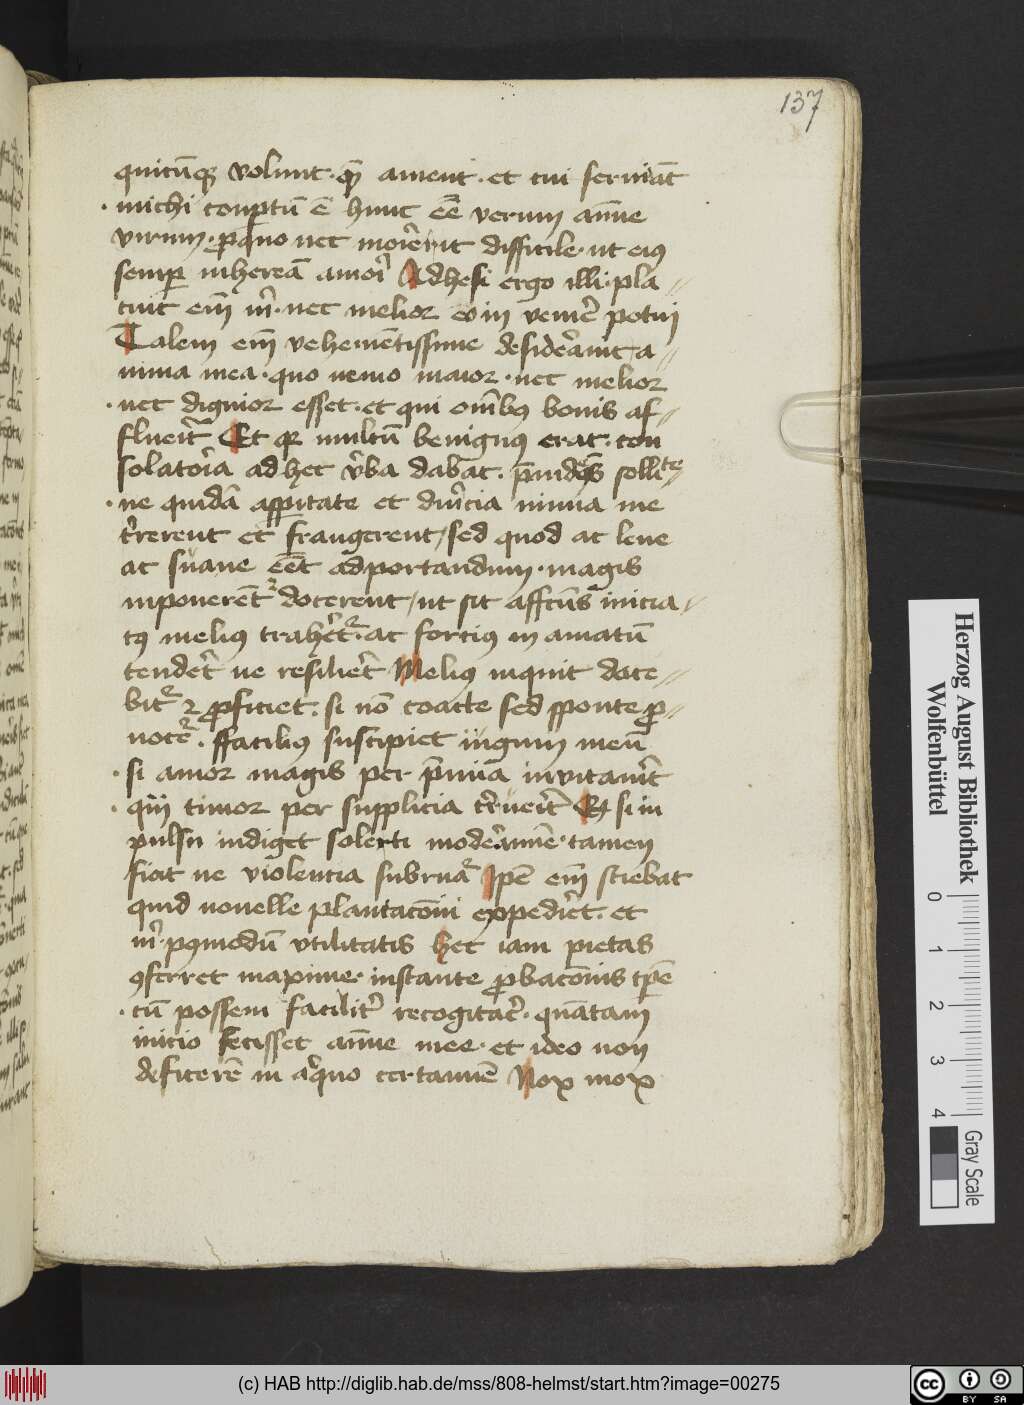 137
quicūq volunt · qͥ ament · et cui seruiāt
· michi conptū ē hunc eē verum aīme
virum · pquo nec moreret difficile · ut eiꝰ
semp inhereā amori Adhesi ergo illi · pla
cuit em m · nec melior eo in veire potui
Talem em vehemētissime desiderauit a
nima mea · quo nemo maior · nec melior
· nec dignior esset · et qui omībꝰ bonis af
flueret Et qr multū benignꝰ erat · con
solatoria ad hec vba dabat · puidēs sollīte
· ne quidā asperitate et duricia nimia me
trerent et frangerent / sed quod ac leue
ac suaue eēt ad portandum · magis
inponerēt docerent / ut sit affcūs inicia
tꝰ meliꝰ traheret · ac forciꝰ in amatū
tenderet ne resiliret Meliꝰ inquit doce
bit ⁊ pficiet · si nō coacte sed sponte p
uocet · ffaciliꝰ suscipiet iugum meū
· si amor magis per pmia inuitauit
· qm timor per supplicia trruerit Et si in
pulsu indiget solerti moderamīe · tamen
fiat ne violencia subruat Ipe em sciebat
quid nouelle plantacōni expediret · et
m · pqmodū vtilitatis hec iam pietas
ꝯferret maxime · instante pbacōnis tpe
· cū possem facilit recogitare · quātam
inicio fecisset aīme mee · et ideo non
deficerē in aquo certamīe Nox mox
Herzog August Bibliothek
Wolfenbüttel
0 1 2 3 4
Gray Scale
(c) HAB http://diglib.hab.de/mss/808-helmst/start.htm?image=00275
cc BY SA